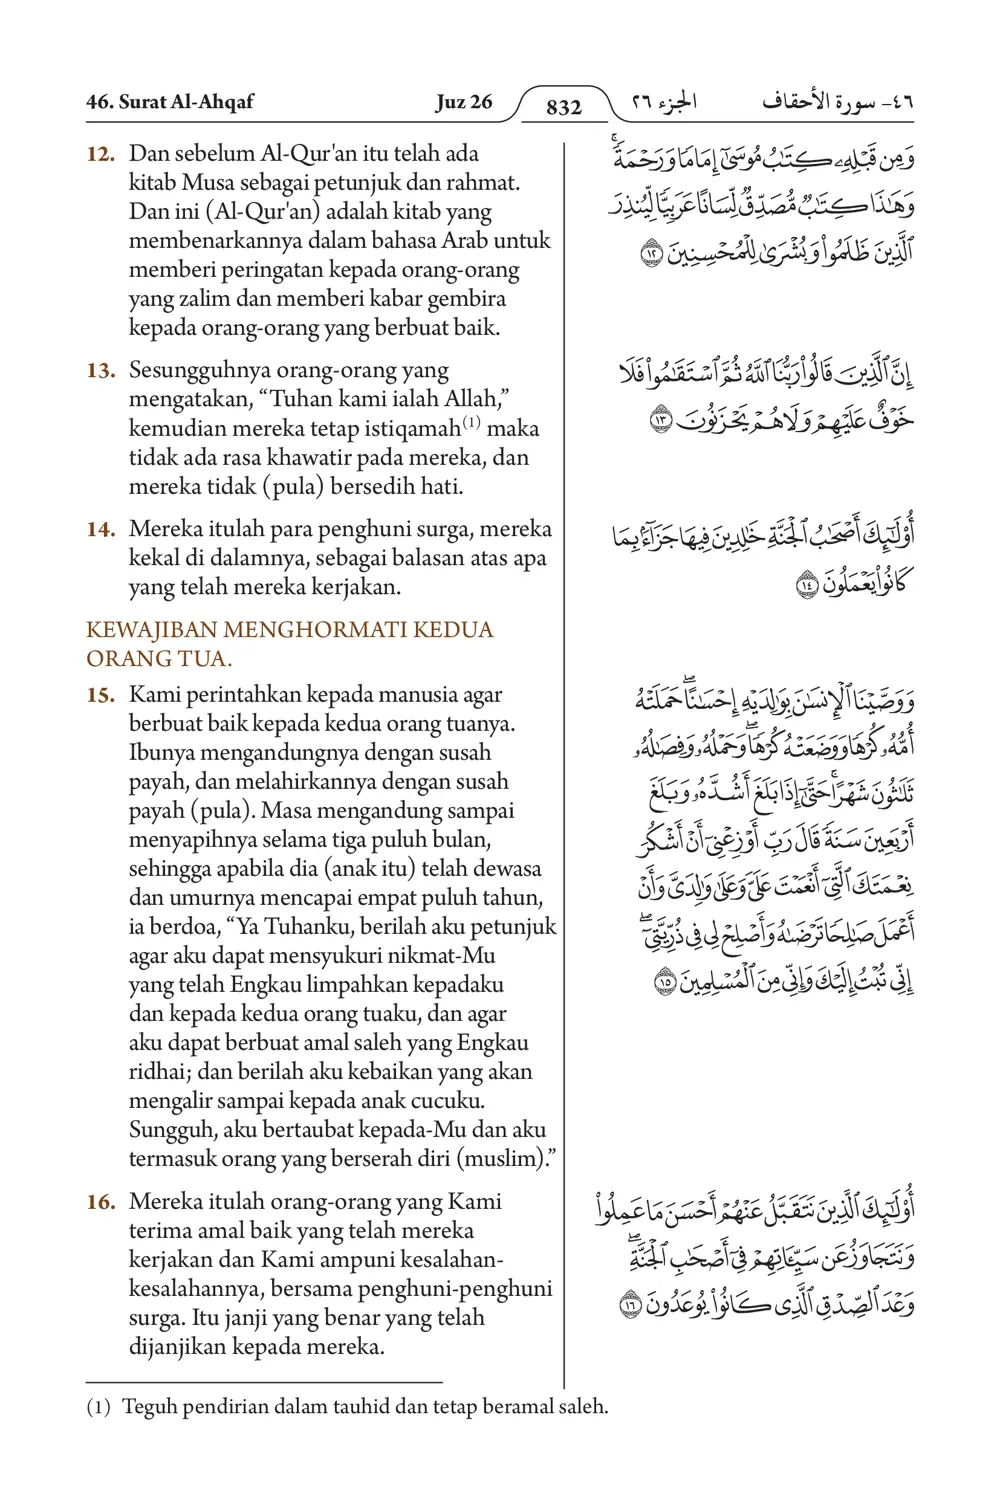 46. Surat Al-Ahqaf Juz 26 832 الجزء ٢٦ ٤٦- سورة الأحقاف
12. Dan sebelum Al-Qur'an itu telah ada
kitab Musa sebagai petunjuk dan rahmat.
Dan ini (Al-Qur'an) adalah kitab yang
membenarkannya dalam bahasa Arab untuk
memberi peringatan kepada orang-orang
yang zalim dan memberi kabar gembira
kepada orang-orang yang berbuat baik.
وَمِن قَبْلِهِۦ كِتَٰبُ مُوسَىٰٓ إِمَامًا وَرَحْمَةً ۚ
وَهَٰذَا كِتَٰبٌ مُّصَدِّقٌ لِّسَانًا عَرَبِيًّا لِّيُنذِرَ
ٱلَّذِينَ ظَلَمُوا۟ وَبُشْرَىٰ لِلْمُحْسِنِينَ ١٢
13. Sesungguhnya orang-orang yang
mengatakan, “Tuhan kami ialah Allah,”
kemudian mereka tetap istiqamah(1) maka
tidak ada rasa khawatir pada mereka, dan
mereka tidak (pula) bersedih hati.
إِنَّ ٱلَّذِينَ قَالُوا۟ رَبُّنَا ٱللَّهُ ثُمَّ ٱسْتَقَٰمُوا۟ فَلَا
خَوْفٌ عَلَيْهِمْ وَلَا هُمْ يَحْزَنُونَ ١٣
14. Mereka itulah para penghuni surga, mereka
kekal di dalamnya, sebagai balasan atas apa
yang telah mereka kerjakan.
أُو۟لَٰٓئِكَ أَصْحَٰبُ ٱلْجَنَّةِ خَٰلِدِينَ فِيهَا جَزَآءًۢ بِمَا
كَانُوا۟ يَعْمَلُونَ ١٤
KEWAJIBAN MENGHORMATI KEDUA
ORANG TUA.
15. Kami perintahkan kepada manusia agar
berbuat baik kepada kedua orang tuanya.
Ibunya mengandungnya dengan susah
payah, dan melahirkannya dengan susah
payah (pula). Masa mengandung sampai
menyapihnya selama tiga puluh bulan,
sehingga apabila dia (anak itu) telah dewasa
dan umurnya mencapai empat puluh tahun,
ia berdoa, “Ya Tuhanku, berilah aku petunjuk
agar aku dapat mensyukuri nikmat-Mu
yang telah Engkau limpahkan kepadaku
dan kepada kedua orang tuaku, dan agar
aku dapat berbuat amal saleh yang Engkau
ridhai; dan berilah aku kebaikan yang akan
mengalir sampai kepada anak cucuku.
Sungguh, aku bertaubat kepada-Mu dan aku
termasuk orang yang berserah diri (muslim).”
وَوَصَّيْنَا ٱلْإِنسَٰنَ بِوَٰلِدَيْهِ إِحْسَٰنًا ۖ حَمَلَتْهُ
أُمُّهُۥ كُرْهًا وَوَضَعَتْهُ كُرْهًا ۖ وَحَمْلُهُۥ وَفِصَٰلُهُۥ
ثَلَٰثُونَ شَهْرًا ۚ حَتَّىٰٓ إِذَا بَلَغَ أَشُدَّهُۥ وَبَلَغَ
أَرْبَعِينَ سَنَةً قَالَ رَبِّ أَوْزِعْنِىٓ أَنْ أَشْكُرَ
نِعْمَتَكَ ٱلَّتِىٓ أَنْعَمْتَ عَلَىَّ وَعَلَىٰ وَٰلِدَىَّ وَأَنْ
أَعْمَلَ صَٰلِحًا تَرْضَىٰهُ وَأَصْلِحْ لِى فِى ذُرِّيَّتِىٓ ۖ
إِنِّى تُبْتُ إِلَيْكَ وَإِنِّى مِنَ ٱلْمُسْلِمِينَ ١٥
16. Mereka itulah orang-orang yang Kami
terima amal baik yang telah mereka
kerjakan dan Kami ampuni kesalahan-
kesalahannya, bersama penghuni-penghuni
surga. Itu janji yang benar yang telah
dijanjikan kepada mereka.
أُو۟لَٰٓئِكَ ٱلَّذِينَ نَتَقَبَّلُ عَنْهُمْ أَحْسَنَ مَا عَمِلُوا۟
وَنَتَجَاوَزُ عَن سَيِّـَٔاتِهِمْ فِىٓ أَصْحَٰبِ ٱلْجَنَّةِ ۖ
وَعْدَ ٱلصِّدْقِ ٱلَّذِى كَانُوا۟ يُوعَدُونَ ١٦
(1) Teguh pendirian dalam tauhid dan tetap beramal saleh.